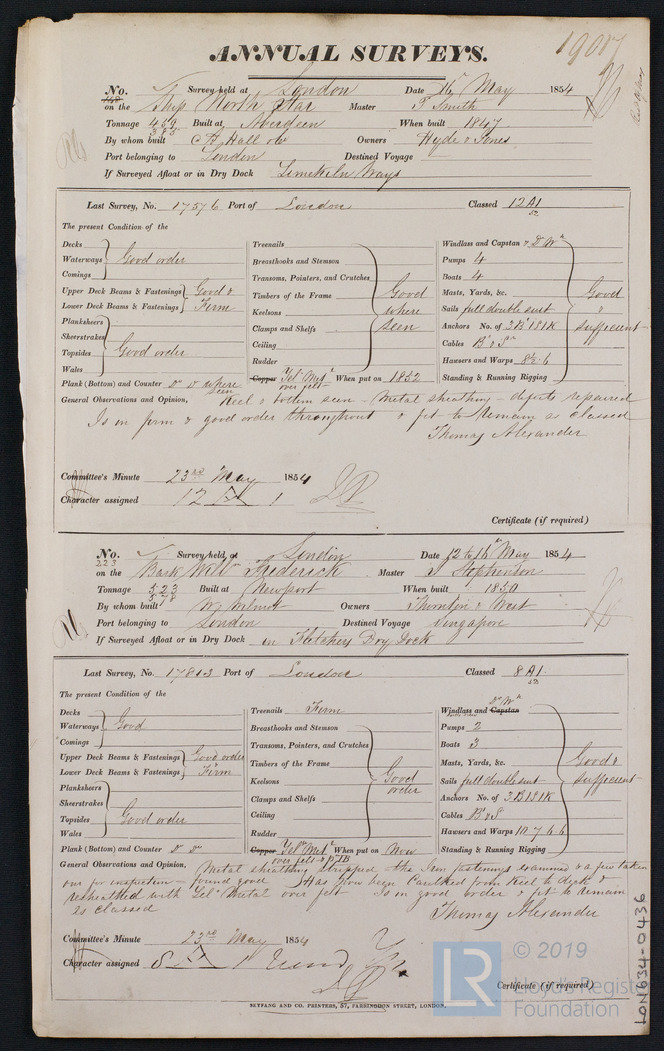 ANNUAL SURVEYS.
No. 148 Survey held at London Date 16 May 1854
on the Ship North Star Master T Smith
Tonnage 459 385 Built at Aberdeen When built 1847
By whom built A Hall & Co Owners Hyde & Jones
Port belonging to London Destined Voyage
If Surveyed Afloat or in Dry Dock Limekiln Ways
Last Survey, No. 17576 Port of London Classed 12 A1
52
The present Condition of the
Decks
Waterways Good order
Comings
Upper Deck Beams & Fastenings Good &
Lower Deck Beams & Fastenings Firm
Planksheers
Sheerstrakes
Topsides Good order
Wales
Plank (Bottom) and Counter Do Do where seen
Treenails
Breasthooks and Stemson
Transoms, Pointers, and Crutches
Timbers of the Frame Good
Keelsons where
Clamps and Shelfs seen
Ceiling
Rudder
Copper Yel Metl over felt When put on 1852
Windlass and Capstan & D Wh
Pumps 4
Boats 4
Masts, Yards, &c. Good
Sails full double suit &
Anchors No. of 3B 1S 1K sufficient
Cables Br & Sm
Hawsers and Warps 8½ . 6
Standing & Running Rigging
General Observations and Opinion, Keel & bottom seen - Metal sheathing - defects repaired
Is in firm & good order throughout & fit to remain as classed
Thomas Alexander
Committee's Minute 23rd May 1854
Character assigned 12 A 1
Certificate (if required)
No. 223 Survey held at London Date 12 to 16th May 1854
on the Bark Willm Frederick Master J Stephenson
Tonnage 523 578 Built at Newport When built 1850
By whom built W. Wilmot Owners Thornton & West
Port belonging to London Destined Voyage Singapore
If Surveyed Afloat or in Dry Dock in Fletchers Dry Dock
Last Survey, No. 17813 Port of London Classed 8 A1
52
The present Condition of the
Decks
Waterways Good
Comings
Upper Deck Beams & Fastenings Good order
Lower Deck Beams & Fastenings Firm
Planksheers
Sheerstrakes
Topsides Good order
Wales
Plank (Bottom) and Counter Do Do
Treenails Firm
Breasthooks and Stemson
Transoms, Pointers, and Crutches
Timbers of the Frame
Keelsons Good
Clamps and Shelfs order
Ceiling
Rudder
Copper Yelw Metl over felt When put on Now
Windlass and Capstan D Wh
Pumps 2
Boats 3
Masts, Yards, &c. Good &
Sails full double suit sufficient
Anchors No. of 3B 1S 1K
Cables Br & S
Hawsers and Warps 10 . 7 . 6 . 6
Standing & Running Rigging
General Observations and Opinion, Metal sheathing stripped the Iron fastenings examined & a few taken
out for inspection found good Has now been Caulked from Keel to deck &
resheathed with Yel Metal over felt Is in good order & fit to remain
as classed Thomas Alexander
Committee's Minute 23rd May 1854
Character assigned 8 A 1
Certificate (if required)
BEYFANG AND CO. PRINTERS, 57, FARRINGDON STREET, LONDON.
LON634-0436
LR © 2019
Lloyd's Register
Foundation